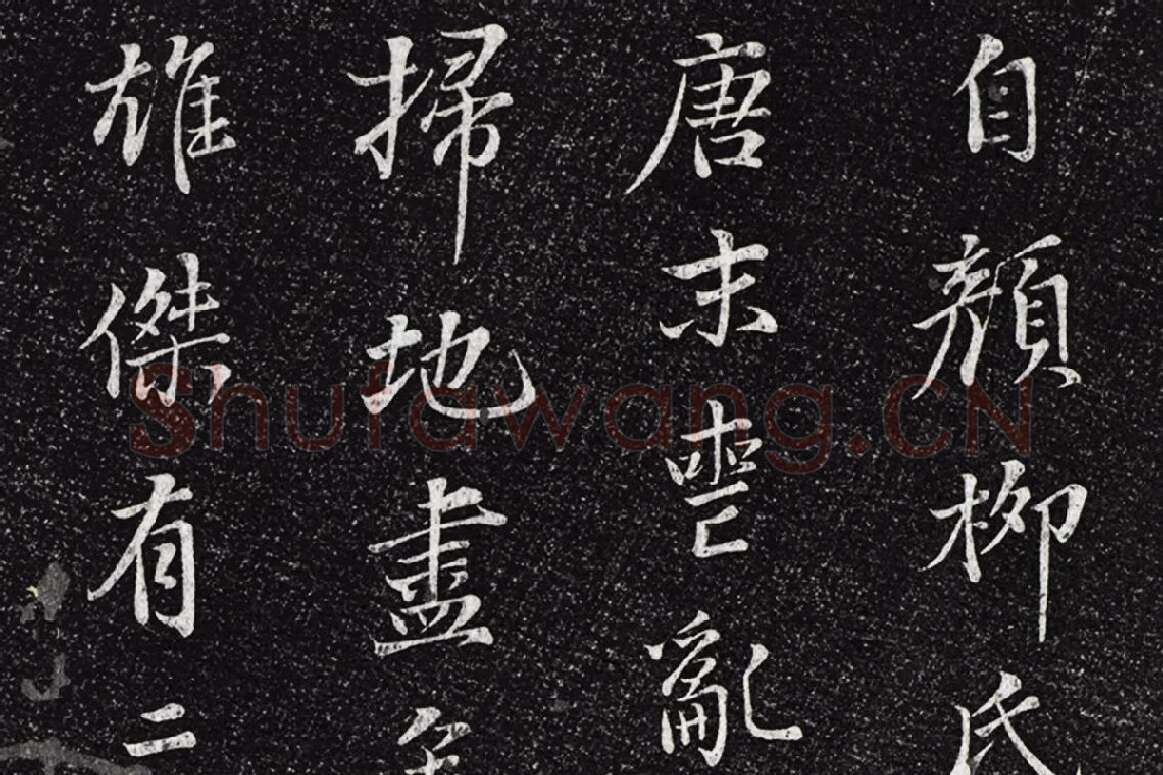 自顏柳氏
唐末喪亂
掃地盡矣
雄傑有二
Shufawang.CN